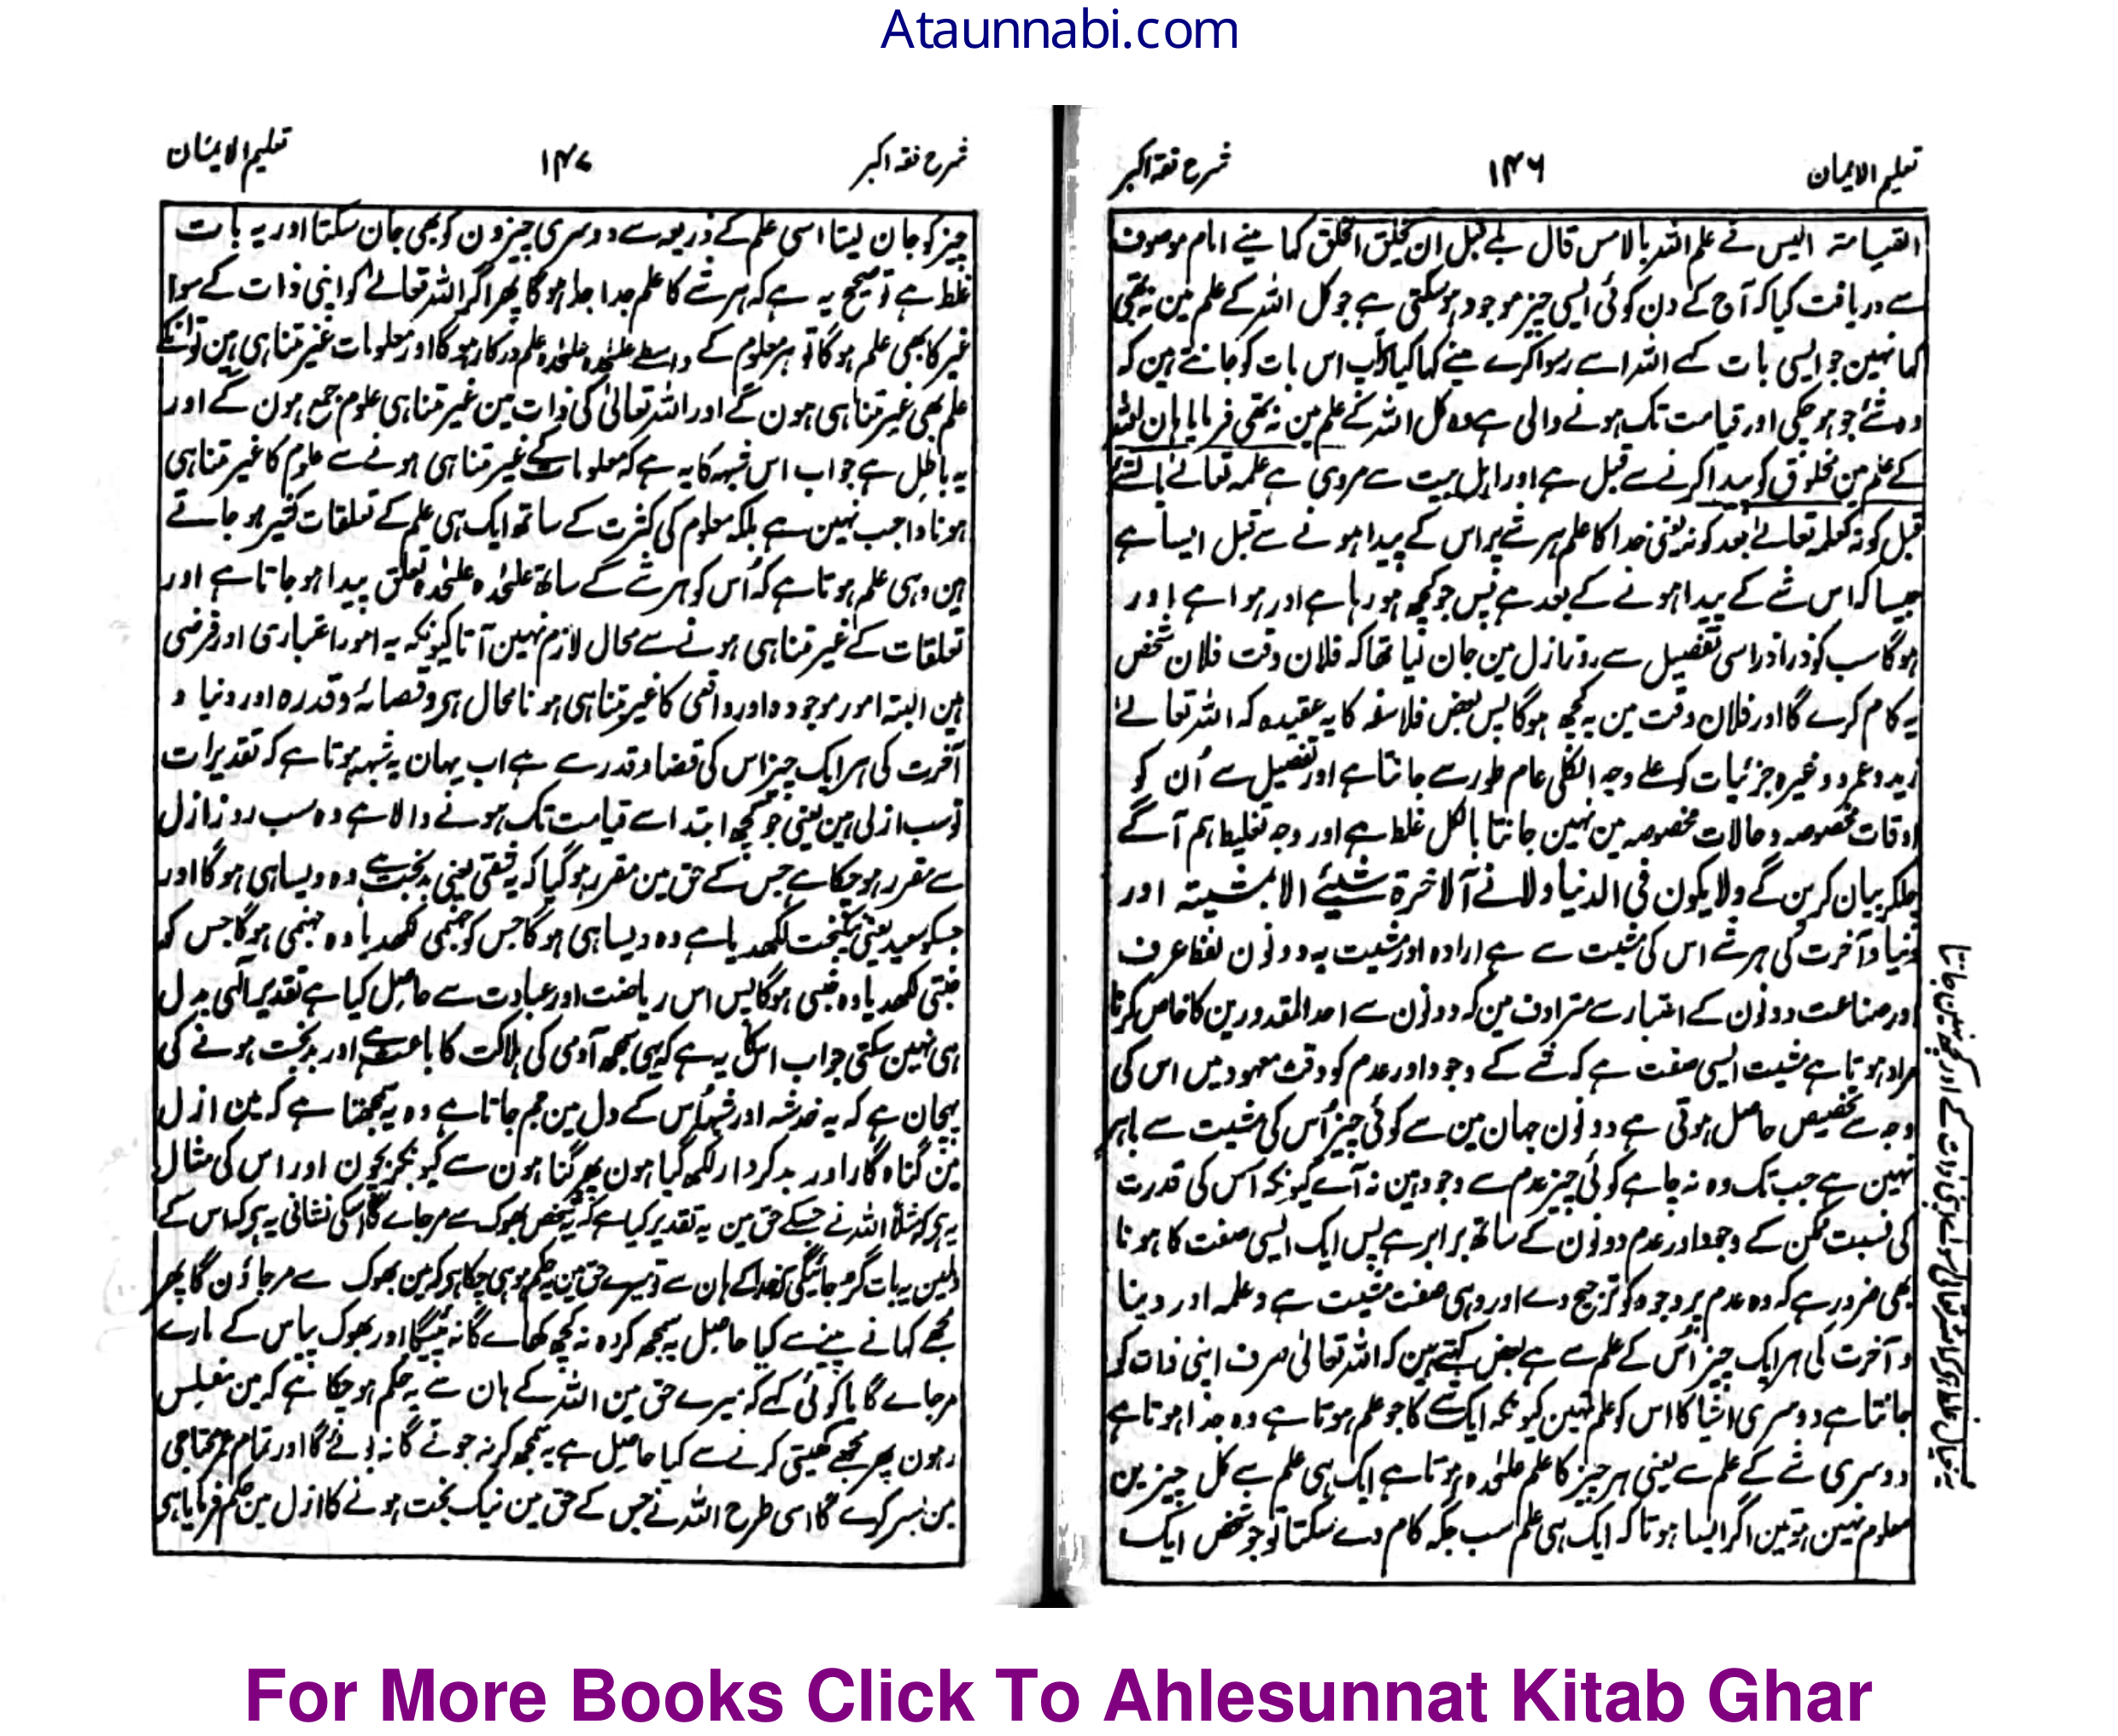 Ataunnabi.com
تعلیم الایمان ۱۴۶ شرح فقہ اکبر
القیامتہ الیس نے علم اللہ بالامس قال بلے قبل ان یخلق الخلق کہا مینے امام موصوف
سے دریافت کیا کہ آج کے دن کوئی ایسی چیز موجود ہو سکتی ہے جو کل اللہ کے علم مین نہ تھی
کہا نہین جو ایسی بات کہے اللہ اسے رسوا کرے مینے کہا کیا آپ اس بات کو جانتے ہین کہ
وہ شئے جو ہو چکی اور قیامت تک ہونے والی ہے وہ کل اللہ کے علم مین نہ تھی فرمایا ہان اللہ
کے علم مین مخلوق کو پیدا کرنے سے قبل ہے اور اہل بیت سے مروی ہے علمہ تعالےٰ بالشے
قبل کونہ کعلمہ تعالےٰ بعد کونہ یعنی خدا کا علم ہر شے پر اس کے پیدا ہونے سے قبل ایسا ہے
جیسا کہ اس شے کے پیدا ہونے کے بعد ہے پس جو کچھ ہو رہا ہے اور ہوا ہے اور
ہوگا سب کو ذرا ذرا سی تفصیل سے روز ازل مین جان لیا تھا کہ فلان وقت فلان شخص
یہ کام کرے گا اور فلان وقت مین یہ کچھ ہوگا پس بعض فلاسفہ کا یہ عقیدہ کہ اللہ تعالےٰ
زید و عمرو وغیرہ جزئیات کو علے وجہ الکلی عام طور سے جانتا ہے اور تفصیل سے اُن کو
اوقات مخصوصہ و حالات مخصوصہ مین نہین جانتا بالکل غلط ہے اور وجہ تغلیط ہم آگے
چلکر بیان کرین گے ولا یکون فی الدنیا ولا نے آلاخرۃ شیئے الا بمشیتہ اور
دنیا و آخرت کی ہر شے اس کی مشیت سے ہے ارادہ اور مشیت یہ دونون لفظ عرف
اور صناعت دونون کے اعتبار سے مترادف مین کہ دونون سے احد المقدورین کا خاص کرنا
مراد ہوتا ہے مشیت ایسی صفت ہے کہ شے کے وجود اور عدم کو وقت معہود میں اس کی
وجہ سے تخصیص حاصل ہوتی ہے دونون جہان مین سے کوئی چیز اُس کی مشیت سے باہر
نہین ہے جب تک وہ نہ چاہے کوئی چیز عدم سے وجود مین نہ آسے کیونکہ اس کی قدرت
کی نسبت ممکن کے وجود اور عدم دونون کے ساتھ برابر ہے پس ایک ایسی صفت کا ہونا
بھی ضرور ہے کہ وہ عدم پر وجود کو ترجیح دے اور وہی صفت مشیت ہے وعلمہ اور دنیا
و آخرت کی ہر ایک چیز اُس کے علم سے ہے بعض کہتے ہین کہ اللہ تعالیٰ صرف اپنی ذات کو
جانتا ہے دوسری اشیا کا اس کو علم نہین کیونکہ ایک شے کا جو علم ہوتا ہے وہ جدا ہوتا ہے
دوسری شے کے علم سے یعنی ہر چیز کا علم علٰحدہ ہوتا ہے ایک ہی علم سے کل چیزین
معلوم نہین ہوتین اگر ایسا ہوتا کہ ایک ہی علم سب جگہ کام دے سکتا تو جو شخص ایک
شرح فقہ اکبر ۱۴۷ تعلیم الایمان
چیز کو جان لیتا اسی علم کے ذریعہ سے دوسری چیزون کو بھی جان سکتا اور یہ بات
غلط ہے تو صحیح یہ ہے کہ ہر شے کا علم جدا جدا ہوگا پھر اگر اللہ تعالےٰ کو اپنی ذات کے سوا
غیر کا بھی علم ہوگا تو ہر معلوم کے واسطے علٰحدہ علٰحدہ علم درکار ہوگا اور معلومات غیر متناہی ہین تو انکے
علم بھی غیر متناہی ہون گے اور اللہ تعالیٰ کی ذات مین غیر متناہی علوم جمع ہون گے اور
یہ باطل ہے جواب اس شبہہ کا یہ ہے کہ معلومات کے غیر متناہی ہونے سے علوم کا غیر متناہی
ہونا واجب نہین ہے بلکہ معلوم کی کثرت کے ساتھ ایک ہی علم کے تعلقات کثیر ہو جاتے
ہین وہی علم ہوتا ہے کہ اُس کو ہر شے کے ساتھ علٰحدہ علٰحدہ تعلق پیدا ہو جاتا ہے اور
تعلقات کے غیر متناہی ہونے سے محال لازم نہین آتا کیونکہ یہ امور اعتباری اور فرضی
ہین البتہ امور موجودہ اور واقعی کا غیر متناہی ہونا محال ہی وقضائہ وقدرہ اور دنیا و
آخرت کی ہر ایک چیز اس کی قضا و قدر سے ہے اب یہان یہ شبہہ ہوتا ہے کہ تقدیرات
تو سب ازلی ہین یعنی جو کچھ ابتدا سے قیامت تک ہونے والا ہے وہ سب روز ازل
سے مقرر ہو چکا ہے جس کے حق مین مقرر ہو گیا کہ یہ شقی یعنی بدبخت ہے وہ ویسا ہی ہوگا اور
جسکو سعید یعنی نیکبخت لکھدیا ہے وہ ویسا ہی ہوگا جس کو جہنمی لکھدیا وہ جہنمی ہوگا جس کو
جنتی لکھدیا وہ جنتی ہوگا پس اس ریاضت اور عبادت سے حاصل کیا ہے تقدیر الٰہی بدل
ہی نہین سکتی جواب اسکا یہ ہے کہ یہی سمجھ آدمی کی ہلاکت کا باعث ہے اور بدبخت ہونے کی
پہچان ہے کہ یہ خدشہ اور شبہہ اُس کے دل مین جم جاتا ہے وہ یہ سمجھتا ہے کہ مین ازل
مین گناہ گار اور بدکردار لکھ گیا ہون پھر گناہون سے کیونکر بچون اور اس کی مثال
یہ ہی کہ مثلاً اللہ نے جسکے حق مین یہ تقدیر کیا ہے کہ یہ شخص بھوک سے مر جاے گا اسکی نشانی یہ ہی کہ اس کے
دلمین یہ بات گڑ جائیگی کہ خدا کے ہان سے تو میرے حق مین یہ حکم ہو ہی چکا ہی کہ مین بھوک سے مر جاؤن گا پھر
مجھے کہانے پینے سے کیا حاصل یہ سمجھ کر وہ نہ کچھ کھاے گا نہ پیئیگا اور بھوک پیاس کے مارے
مر جاے گا یا کوئی کہے کہ میرے حق مین اللہ کے ہان سے یہ حکم ہو چکا ہے کہ مین مفلس
رہون پھر مجھے کھیتی کرنے سے کیا حاصل ہے یہ سمجھ کر نہ جوتے گا نہ بوئے گا اور تمام عمر محتاجی
مین بسر کرے گا اسی طرح اللہ نے جس کے حق مین نیک بخت ہونے کا ازل مین حکم فرمایا ہی
For More Books Click To Ahlesunnat Kitab Ghar